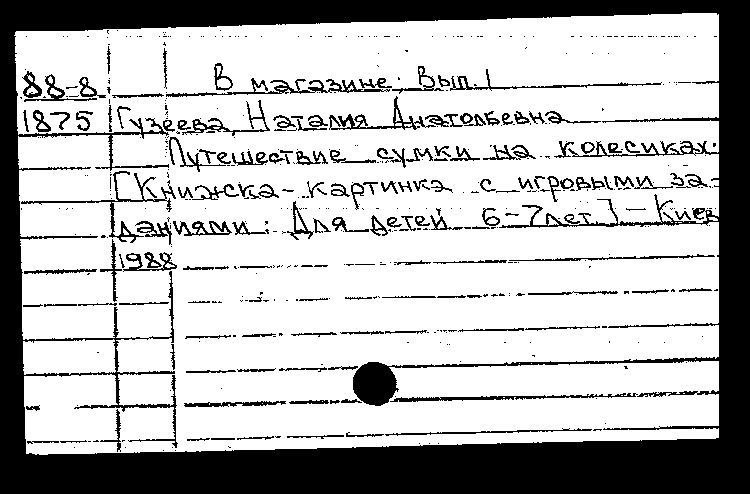 88-8 В магазине; Вып. 1
1875 Гузеева, Наталия Анатольевна
Путешествие сумки на колесиках.
[Книжка-картинка с игровыми за-
даниями: Для детей 6-7 лет] - Киев
1988